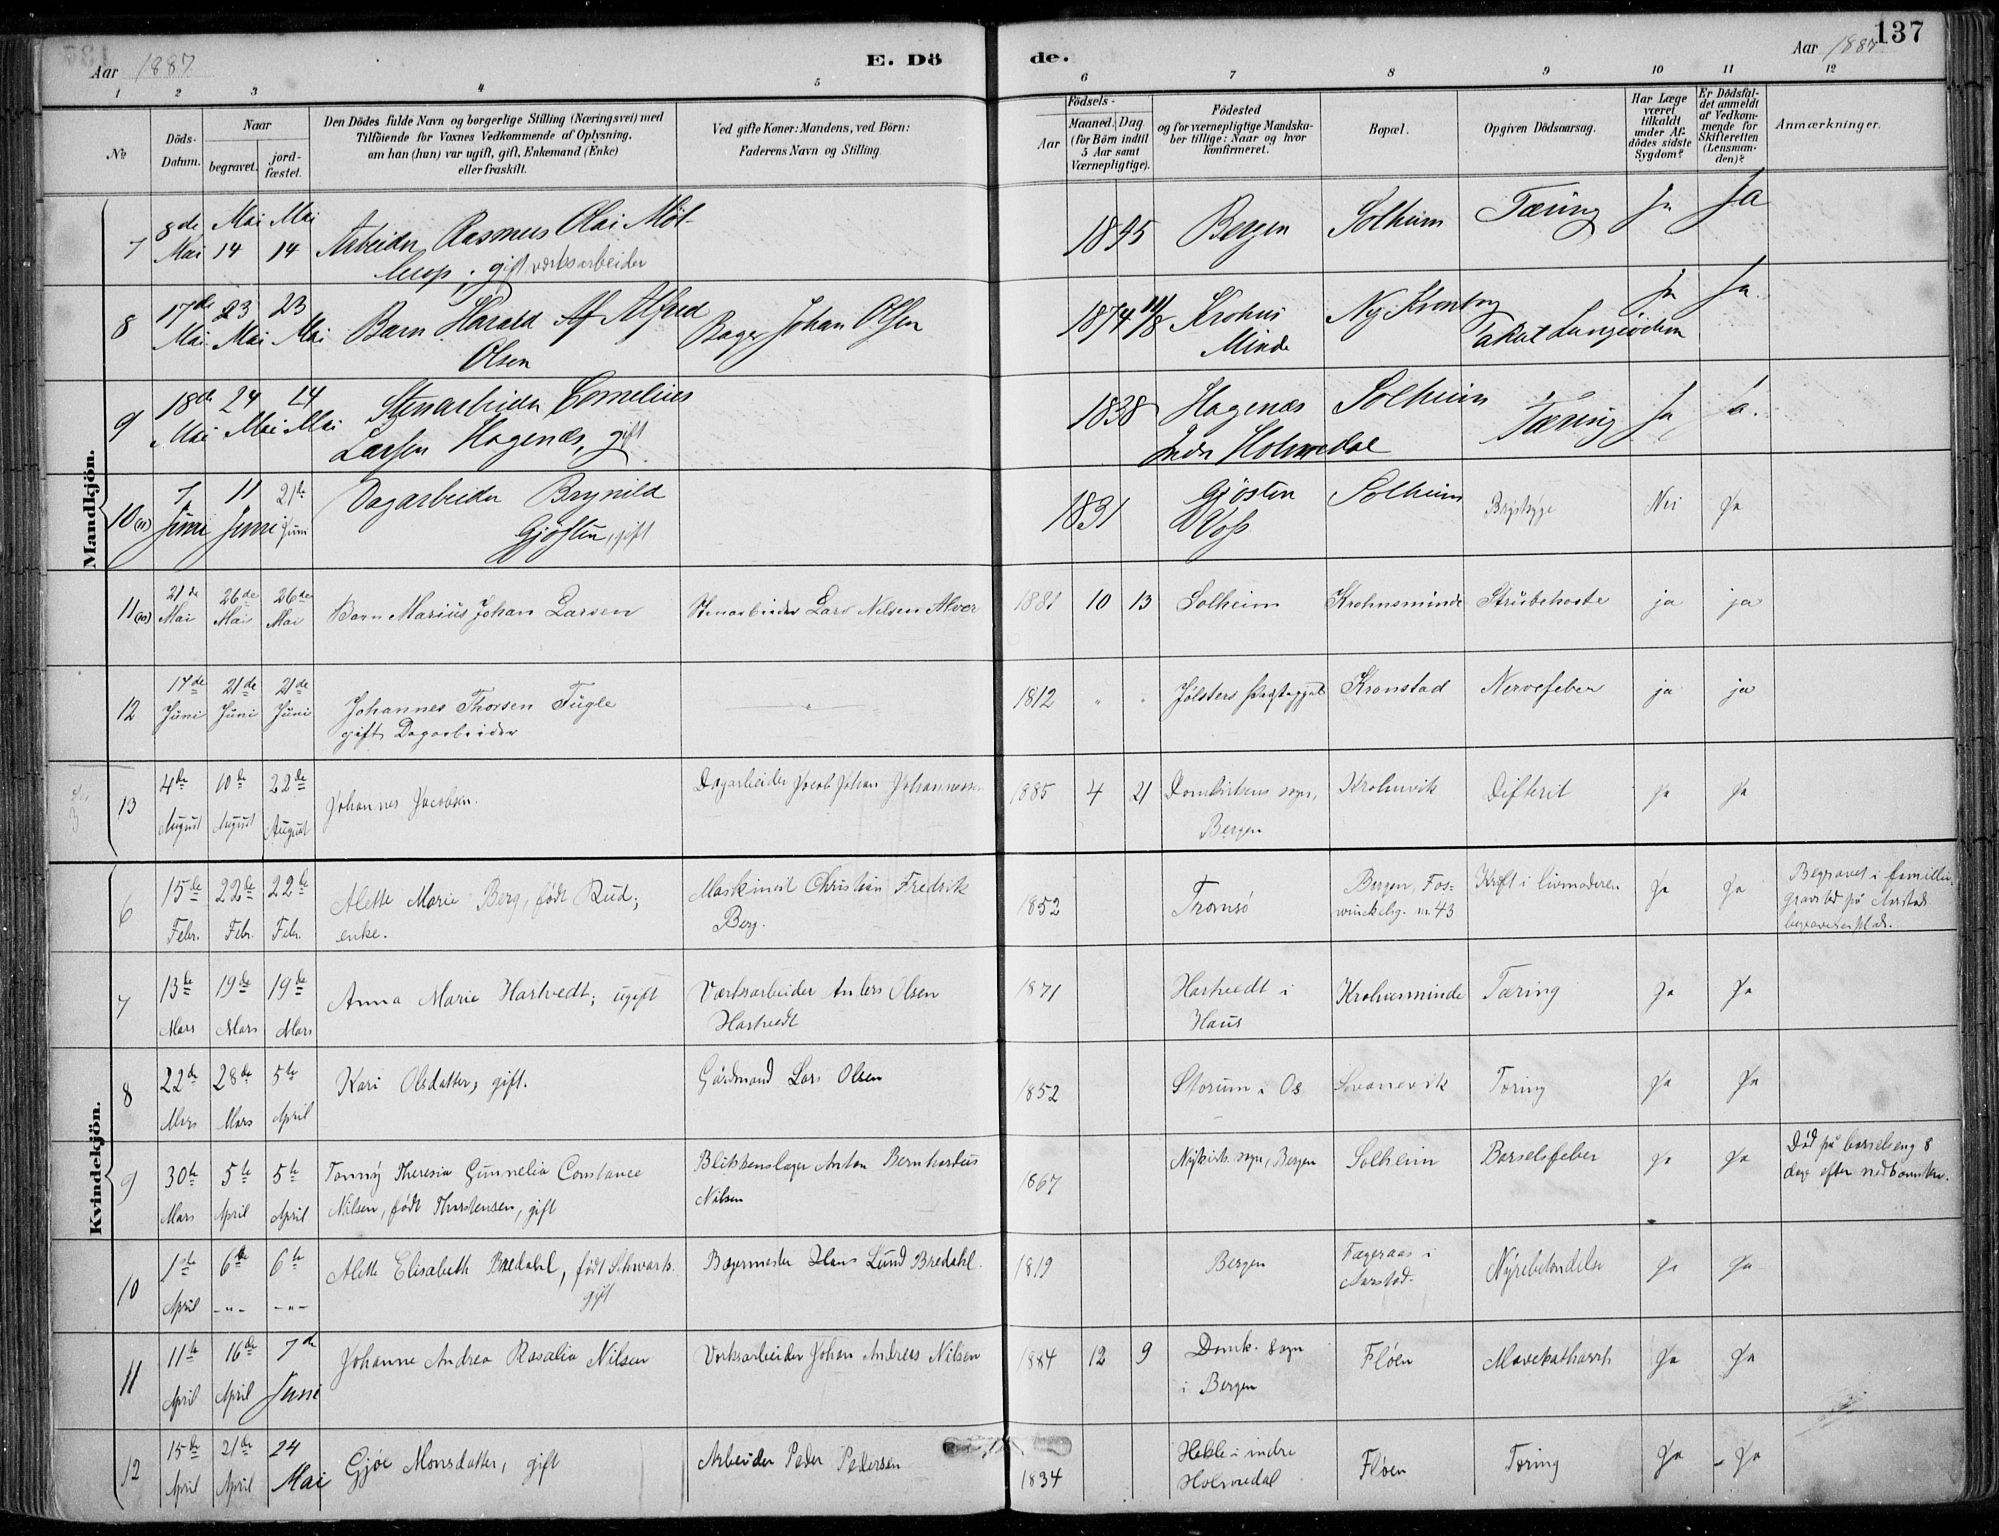 137
Aar 1887.
E. Dö
de.
Aar 1887
1 2 3 4 5 6 7 8 9 10 11 12
№
Döds-
Datum.
Naar
begravet.
jord-
fæstet.
Den Dödes fulde Navn og borgerlige Stilling (Næringsvei) med
Tilföiende for Voxnes Vedkommende af Oplysning,
om han (hun) var ugift, gift, Enkemand (Enke)
eller fraskilt.
Ved gifte Koner: Mandens, ved Börn:
Faderens Navn og Stilling.
Födsels-
Aar
Maaned. Dag.
(for Börn indtil
5 Aar samt
Værnepligtige).
Födested
og for værnepligtige Mandska-
ber tillige: Naar og hvor
konfirmeret.
Bopæl.
Opgiven Dödsaarsag.
Har Læge
været
tilkaldt
under Af-
dödes sidste
Sygdom?
Er Dödsfal-
det anmeldt
af Vedkom-
mende for
Skifteretten
(Lensman-
den)?
Anmærkninger.
Mandkjön.
7 8de Mai Mai Mai 14 14 Arbeider Rasmus Olai Möl-
lerop, gift værksarbeider 1845 Bergen Solheim Tæring Ja Ja
8 17de Mai 23 Mai 23 Mai Barn Harald Alfred
Olsen Bager Johan Olsen 1874 Krohns
Minde Ny Kronborg Ja Ja.
9 18de Mai 24 Mai Mai Stenarbeider Cornelius
Larsen Hagenæs, gift 1838 Hagenæs
Indre Holmedal Solheim Tæring Ja Ja.
10 7 Juni 11 Juni 21de Juni Dagarbeider Brynild
Gjösten, gift 1831 Gjösten
Voss Solheim Brystsyge Nei Ja
11 21de Mai 26de Mai 26de Mai Barn Marius Johan Larsen Stenarbeider Lars Nilsen Alver 1881 10 13 Solheim Krohnsminde Strubehoste ja ja
12 17de Juni 21de Juni 21de Juni Johannes Thorsen Fugle
gift Dagarbeider 1812 " " Jölsters Kronstad Nervefeber ja ja
13 4de August 10de August 22de August Johannes Jacobsen. Dagarbeider Jacob Johan Johannessen 1885 4 21 Domkirkens sogn,
Bergen Krohnvik Difterit Ja Ja
Kvindekjön.
6 15de Febr. 22de Febr. 22de Febr. Alette Marie Berg, født Rud;
enke. Maskinist Christian Fredrik
Berg. 1852 Tromsö Bergen, Fos-
winckelsg. nr. 43 Kræft i livmoderen Ja Ja Begravet i familie-
gravsted på Aarstad
begravelsesplads.
7 13de Mars 19de Mars 19de Mars Anna Marie Hartvedt; ugift Værksarbeider Anders Olsen
Hartvedt 1871 Hartvedt i
Haus Krohnsminde Tæring Ja Ja
8 22de Mars 28de Mars 5te April Kari Olsdatter, gift. Gårdmand Lars Olsen 1852 Storum i Os Tæring Ja Ja
9 30te Mars 5te April 5te April Fanny Theresia Gunnelia Constance
Nilsen, født Thorstensen, gift Blikkenslager Anton Bernhardus
Nilsen 1867 Nykirk. sogn, Bergen Solheim Barselsfeber Ja Ja Död på barselseng 8
dage efter nedkomsten.
10 1ste April 6te -"- 6te -"- Alette Elisabeth Bredahl, født Schwartz.
gift Bagermester Hans Lund Bredahl. 1819 Bergen Fageraas i
Aarstad. Nyrebetændelse Ja Ja
11 11te April 16de April 7de Juni Johanne Andrea Rosalia Nilsen Verksarbeider Johan Andreas Nilsen 1884 12 9 Domk. sogn
i Bergen Fløen Mavekatharrh Ja Ja
12 15de April 21de April 24 Mai Gjøe Monsdatter, gift Arbeider Peder Pedersen 1834 Hekle i indre
Holmedal Fløen Tæring Ja Ja